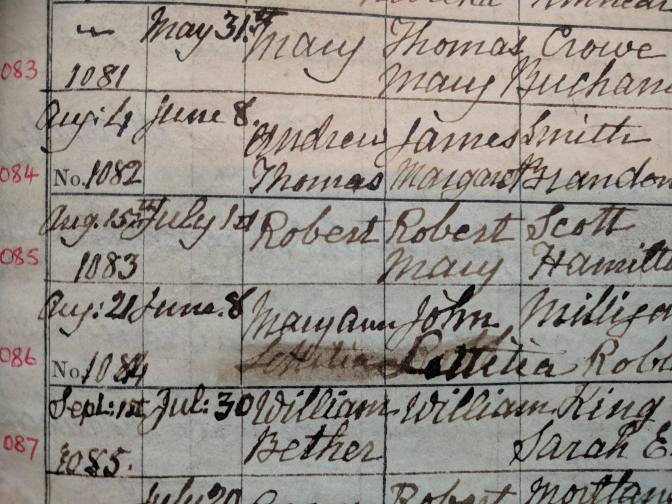 May 31.st Mary Thomas Crowe
083 1081 Mary Buchan
Aug: 4 June 8. Andrew James Smith
084 No. 1082 Thomas Margaret Brandon
Aug. 15th July 1st Robert Robert Scott
085 1083 Mary Hamilto
Aug: 21 June. 8 Mary Ann John Milliga
086 No. 1084 Letitia Robi
Sept: 1st Jul: 30 William William King
087 1085. Bether Sarah E
July 20 Robert Mortlan